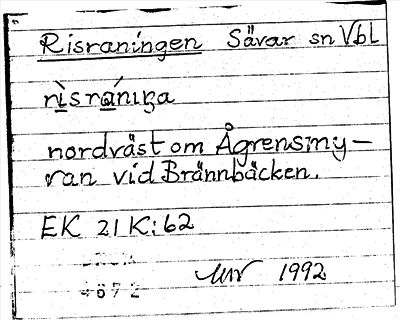 Risraningen Sävar sn Vbl
nordväst om Ågrensmy-
ran vid Brännbäcken.
EK 21 K:62
1992